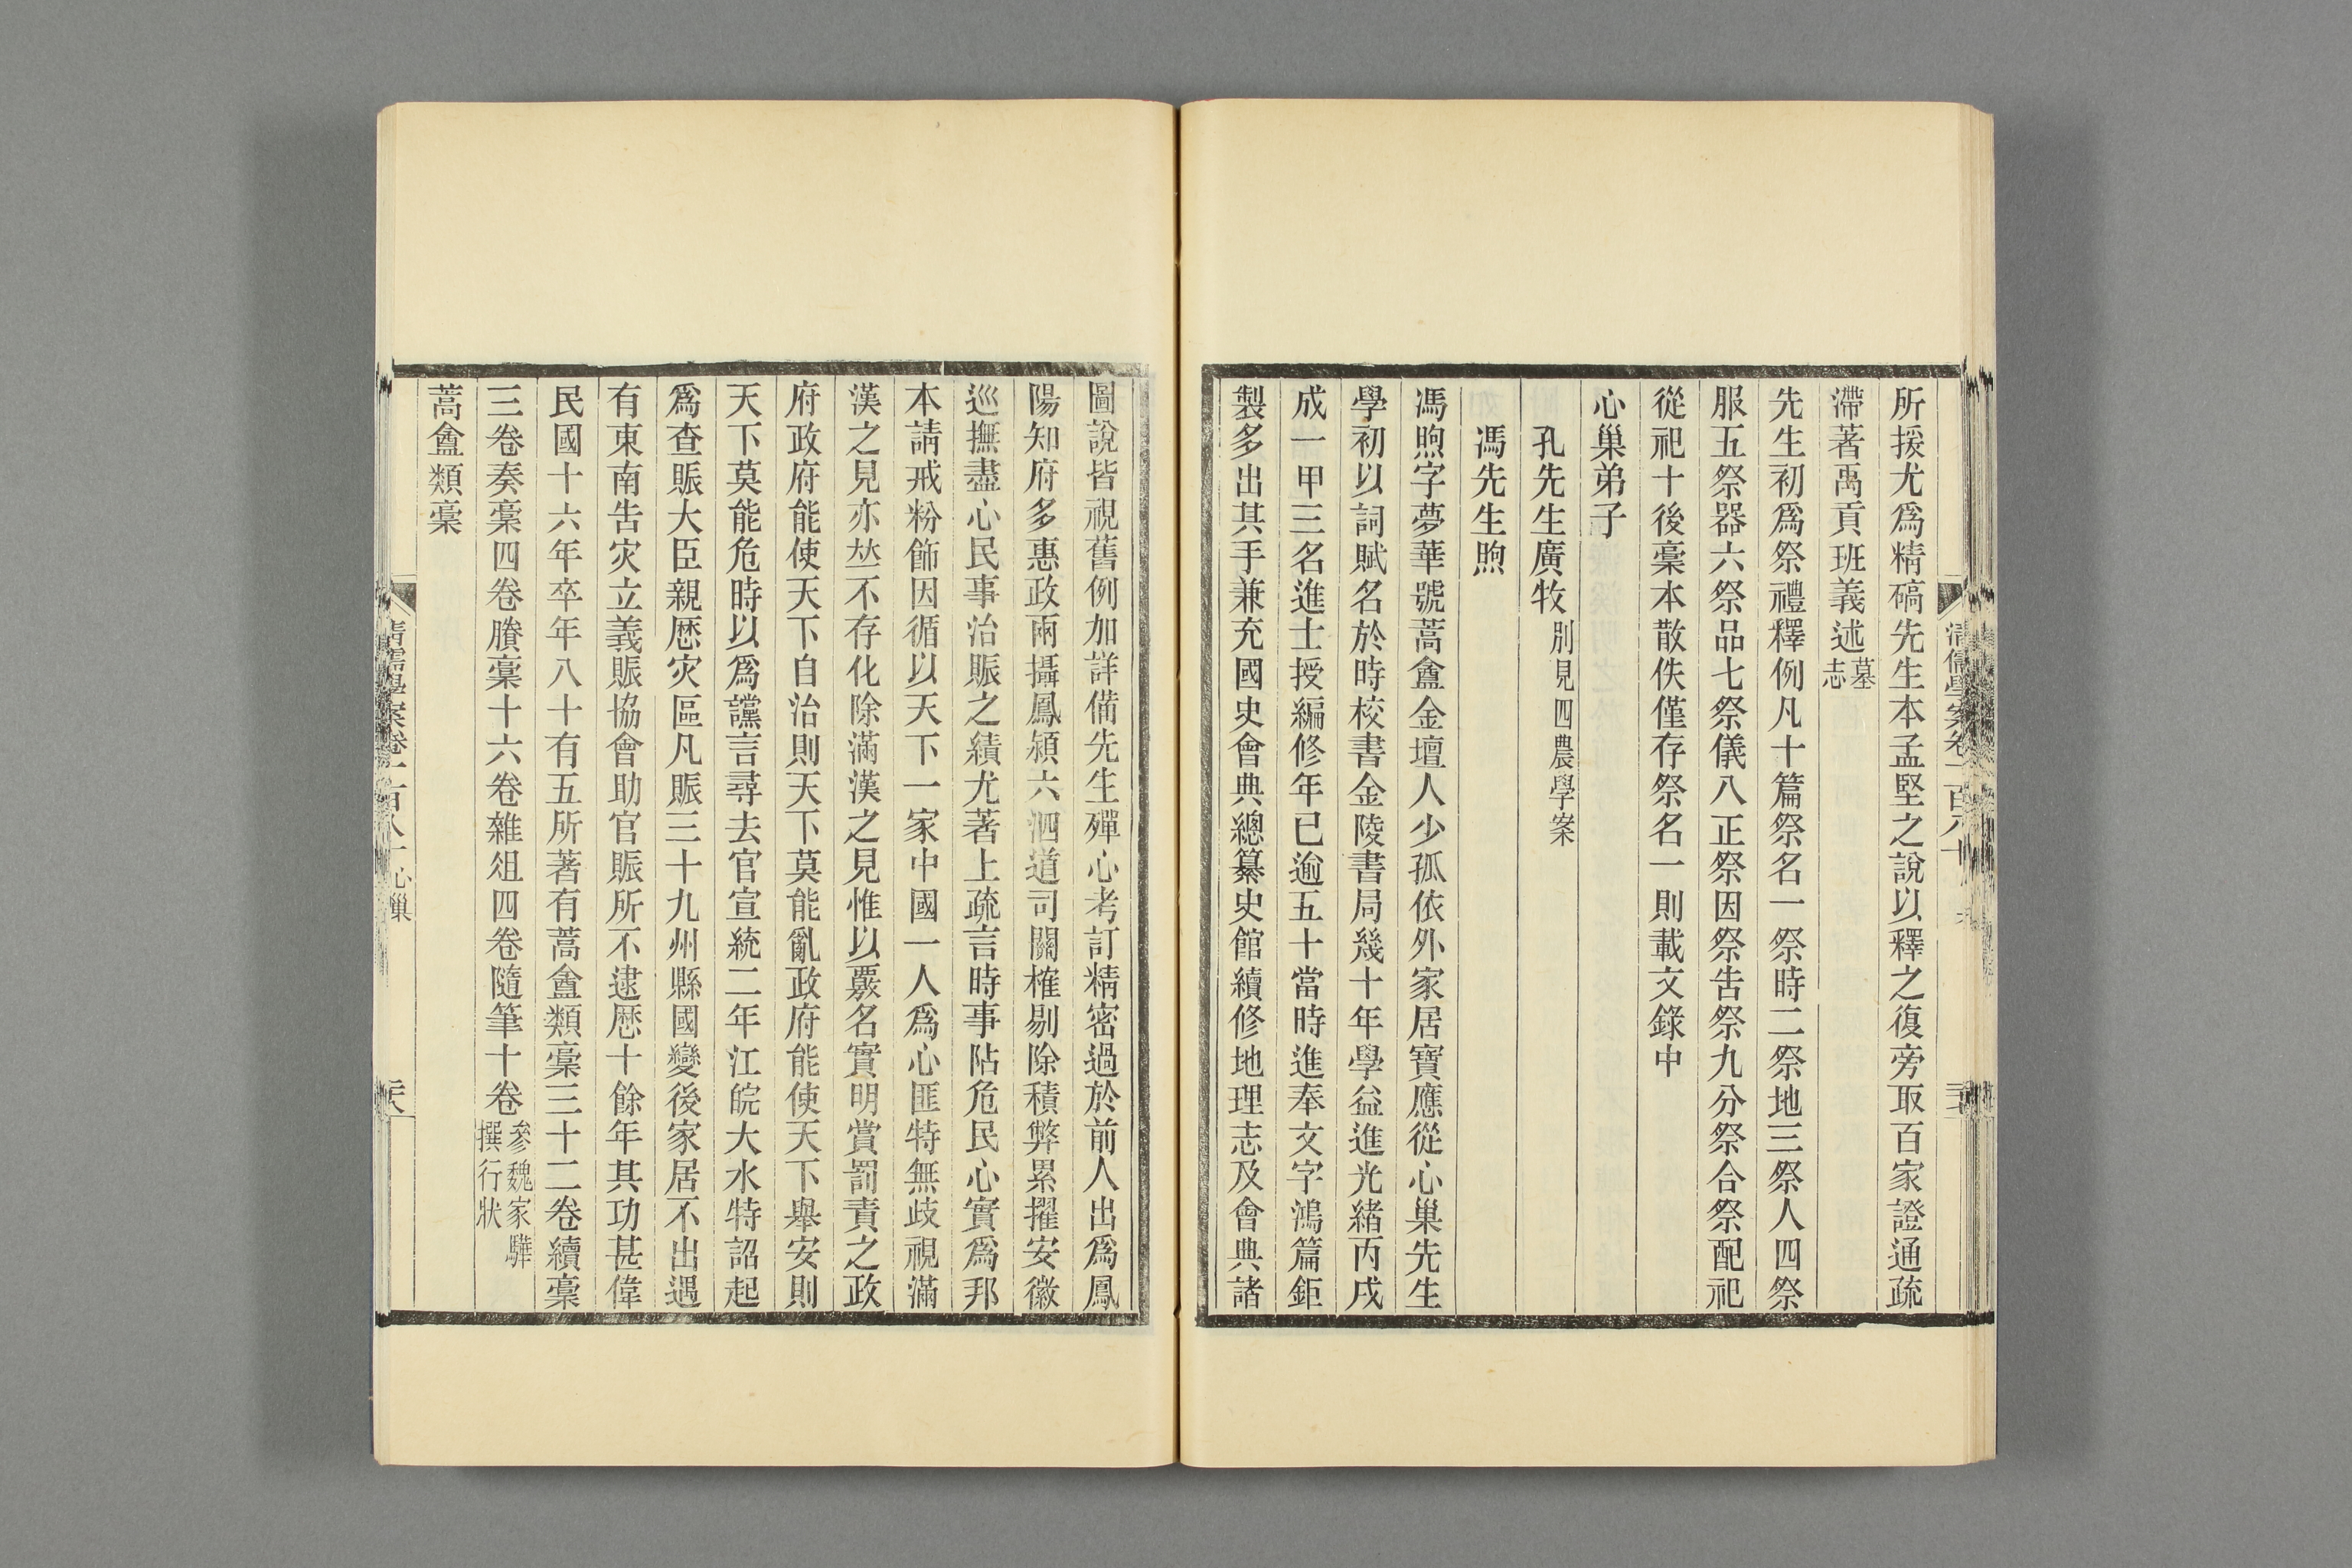 所援尤爲精碻先生本孟堅之說以釋之復旁取百家證通疏
滯著禹貢班義述墓志
先生初爲祭禮釋例凡十篇祭名一祭時二祭地三祭人四祭
服五祭器六祭品七祭儀八正祭因祭告祭九分祭合祭配祀
從祀十後稾本散佚僅存祭名一則載文錄中
心巢弟子
孔先生廣牧別見四農學案
馮先生煦
馮煦字夢華號蒿盦金壇人少孤依外家居寶應從心巢先生
學初以詞賦名於時校書金陵書局幾十年學益進光緒丙戌
成一甲三名進士授編修年已逾五十當時進奉文字鴻篇鉅
製多出其手兼充國史會典總纂史館續修地理志及會典諸
圖說皆視舊例加詳備先生殫心考訂精密過於前人出爲鳳
陽知府多惠政兩攝鳳潁六泗道司關榷剔除積弊累擢安徽
巡撫盡心民事治賑之績尤著上疏言時事阽危民心實爲邦
本請戒粉飾因循以天下一家中國一人爲心匪特無歧視滿
漢之見亦竝不存化除滿漢之見惟以覈名實明賞罰責之政
府政府能使天下自治則天下莫能亂政府能使天下舉安則
天下莫能危時以爲讜言尋去官宣統二年江皖大水特詔起
爲查賑大臣親歷灾區凡賑三十九州縣國變後家居不出遇
有東南告灾立義賑協會助官賑所不逮歷十餘年其功甚偉
民國十六年卒年八十有五所著有蒿盦類稾三十二卷續稾
三卷奏稾四卷賸稾十六卷雜俎四卷隨筆十卷參魏家驊撰行狀
蒿盦類稾